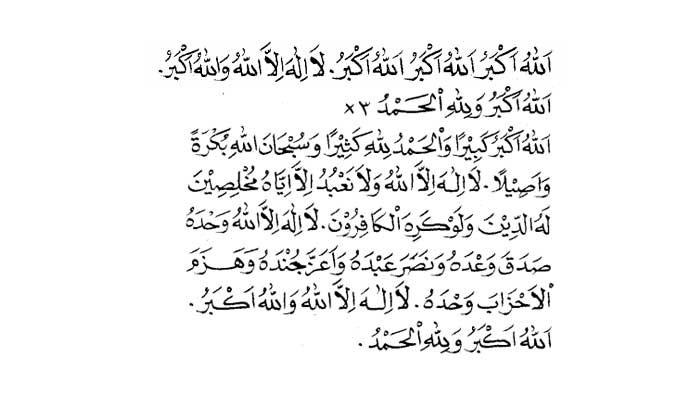 اَللهُ اَكْبَرُ اَللهُ اَكْبَرُ اَللهُ اَكْبَرُ. لَا اِلٰهَ اِلَّا اللهُ وَاللهُ اَكْبَرُ.
اَللهُ اَكْبَرُ وَلِلّٰهِ الْحَمْدُ ٣×
اَللهُ اَكْبَرُ كَبِيْرًا وَالْحَمْدُ لِلّٰهِ كَثِيْرًا وَسُبْحَانَ اللهِ بُكْرَةً
وَاَصِيْلًا. لَا اِلٰهَ اِلَّا اللهُ وَلَا نَعْبُدُ اِلَّا اِيَّاهُ مُخْلِصِيْنَ
لَهُ الدِّيْنَ وَلَوْكَرِهَ الْكَافِرُوْنَ. لَا اِلٰهَ اِلَّا اللهُ وَحْدَهُ
صَدَقَ وَعْدَهُ وَنَصَرَ عَبْدَهُ وَاَعَزَّ جُنْدَهُ وَهَزَمَ
الْاَحْزَابَ وَحْدَهُ. لَا اِلٰهَ اِلَّا اللهُ وَاللهُ اَكْبَرُ.
اَللهُ اَكْبَرُ وَلِلّٰهِ الْحَمْدُ.